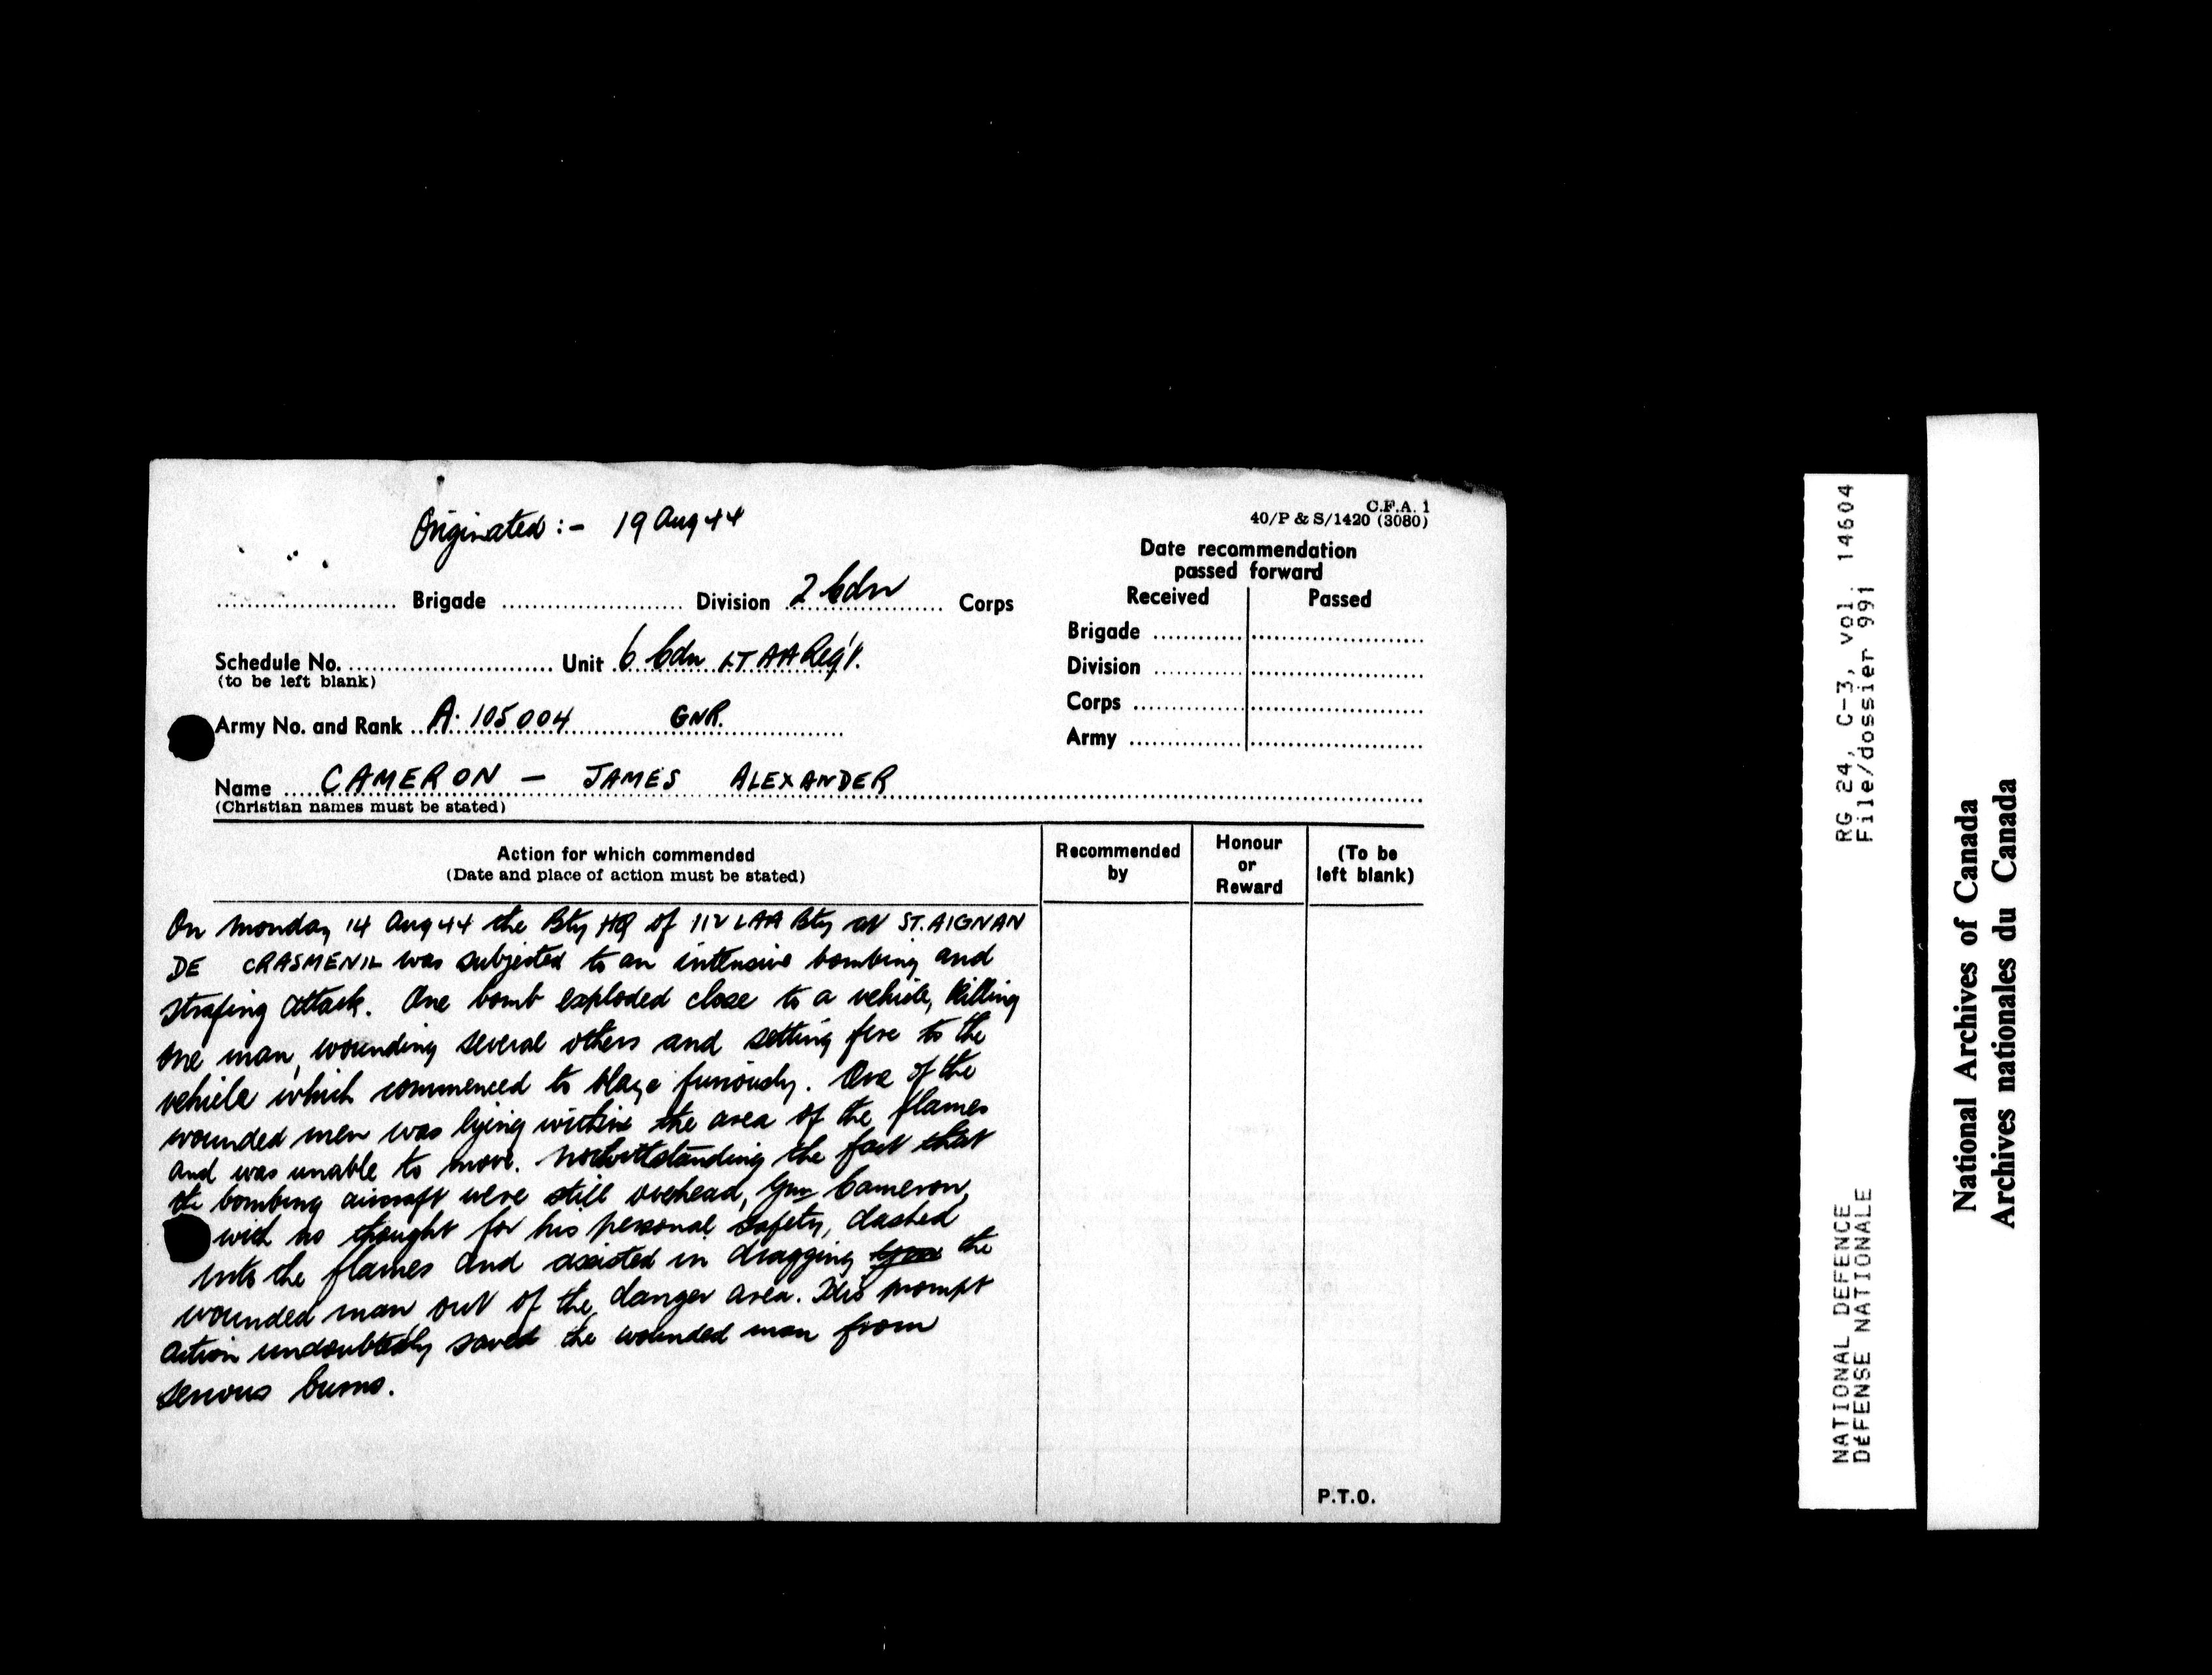 Originated :- 19 Aug 44
C.F.A. 1
40/P & S/1420 (3080)
Date recommendation
passed forward
Received Passed
Brigade Division 2 Cdn Corps
Brigade
Schedule No. Unit 6 Cdn LT AA Reg't.
(to be left blank)
Division
Corps
Army No. and Rank A. 105004 GNR.
Army
Name CAMERON — JAMES ALEXANDER
(Christian names must be stated)
Action for which commended
(Date and place of action must be stated)
Recommended
by
Honour
or
Reward
(To be
left blank)
On Monday 14 Aug 44 the Bty HQ of 112 LAA Bty at ST. AIGNAN
DE CRASMENIL was subjected to an intensive bombing and
strafing attack. One bomb exploded close to a vehicle, killing
one man, wounding several others and setting fire to the
vehicle which commenced to blaze furiously. One of the
wounded men was lying within the area of the flames
and was unable to move. Notwithstanding the fact that
the bombing aircraft were still overhead, Gnr Cameron,
with no thought for his personal safety, dashed
into the flames and assisted in dragging the
wounded man out of the danger area. This prompt
action undoubtedly saved the wounded man from
serious burns.
P.T.O.
RG 24, C-3, vol. 14604
File/dossier 991
NATIONAL DEFENCE
DÉFENSE NATIONALE
National Archives of Canada
Archives nationales du Canada